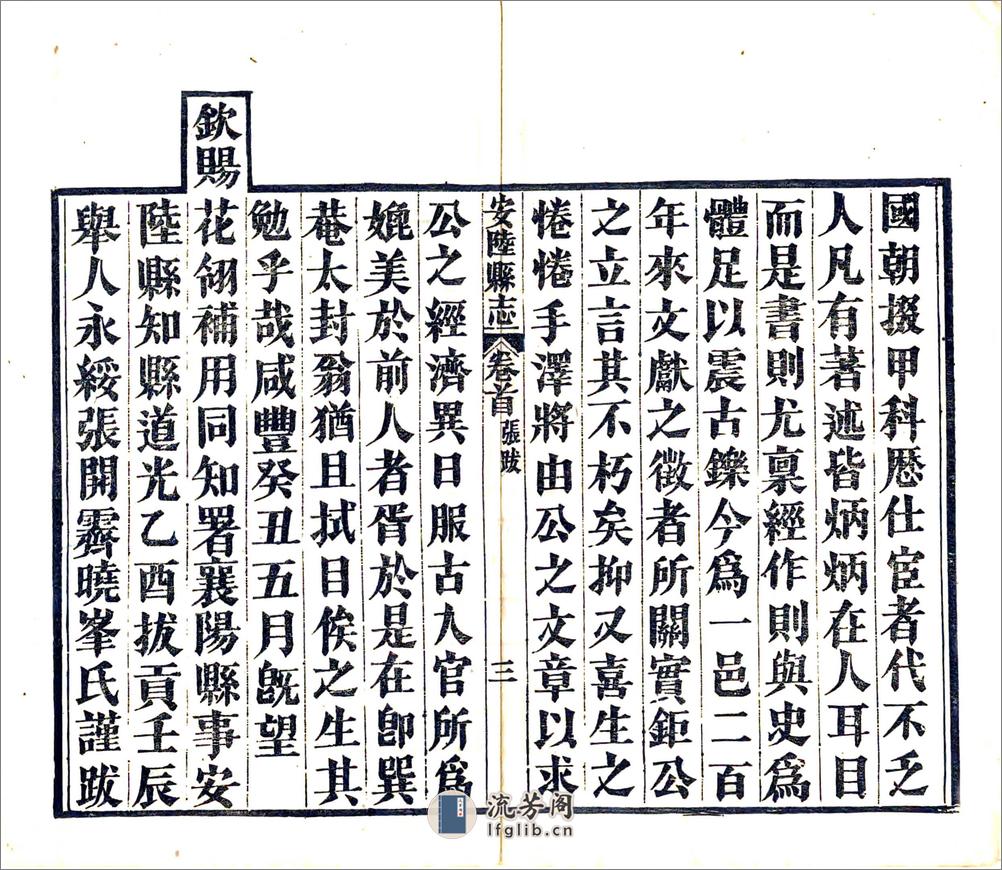 國朝掇甲科歷仕宦者代不乏
人凡有著述皆炳炳在人耳目
而是書則尤稟經作則與史爲
體足以震古鑠今爲一邑二百
年來文獻之徵者所關實鉅公
之立言其不朽矣抑又喜生之
惓惓手澤將由公之文章以求
安陸縣志 卷首 張跋 三
公之經濟異日服古入官所爲
媲美於前人者胥於是在卽巽
菴太封翁猶且拭目俟之生其
勉乎哉咸豐癸丑五月旣望
欽賜
花翎補用同知署襄陽縣事安
陸縣知縣道光乙酉拔貢壬辰
舉人永綏張開霽曉峯氏謹跋
流芳阁
lfglib.cn